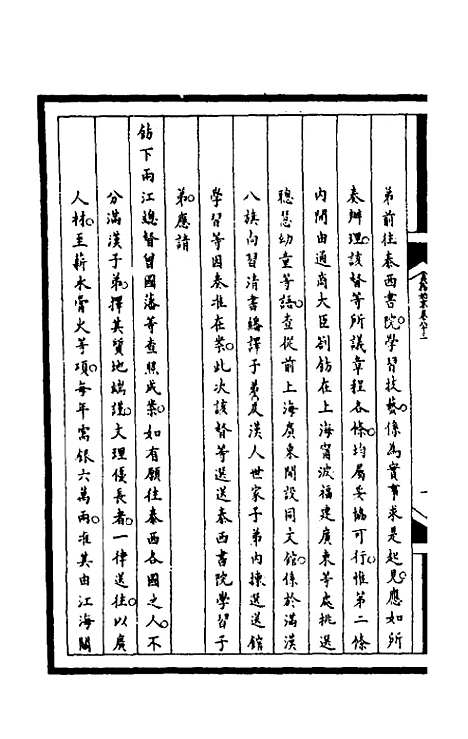 弟前往泰西書院學習技藝係為實事求是起見應如所
奏辦理該督等所議章程各條均屬妥協可行惟第二條
内開由通商大臣劄飭在上海甯波福建廣東等處挑選
聰慧幼童等語查從前上海廣東開設同文館係於滿漢
八旗向習清書繙譯子弟及漢人世家子弟内揀選送館
學習等因奏准在案此次該督等選送泰西書院學習子
弟應請
飭下兩江總督曾國藩等查照成案如有願往泰西各國之人不
分滿漢子弟擇其質地端謹文理優長者一律送往以廣
人材至薪水膏火等項每年需銀六萬兩准其由江海關